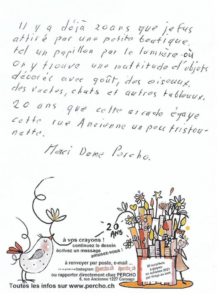 Il y a déjà 20 ans que je fus
attiré par une petite boutique,
tel un papillon par la lumière où
on y trouve une multitude d'objets
décorés avec goût, des oiseaux,
des vaches, chats et autres tableaux.
20 ans que cette arcade égaye
cette rue Ancienne un peu tristou-
nette.
Merci Dame Percho.
20
ANS
à vos crayons !
continuez le dessin
écrivez un message
amusez-vous !
à renvoyer par poste, e-mail
ou rapporter directement chez PERCHO
4, rue Ancienne 1227 Carouge
Toutes les infos sur www.percho.ch